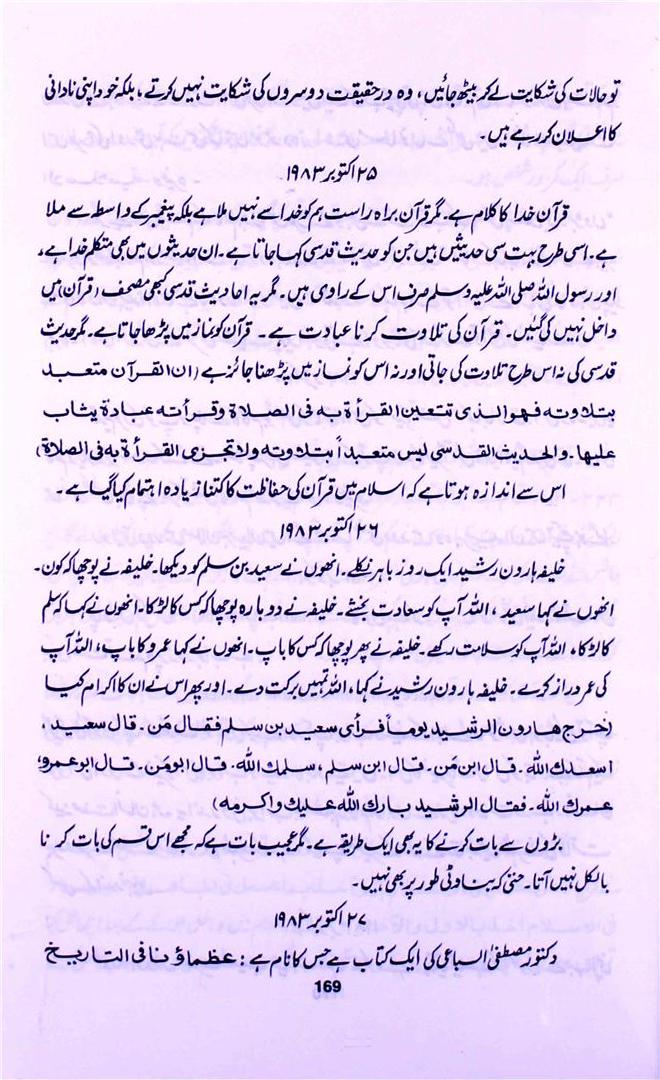 تو حالات کی شکایت لے کر بیٹھ جائیں، وہ درحقیقت دوسروں کی شکایت نہیں کرتے، بلکہ خود اپنی نادانی
کا اعلان کر رہے ہیں۔
۲۵ اکتوبر ۱۹۸۳
قرآن خدا کا کلام ہے۔ مگر قرآن براہ راست ہم کو خدا سے نہیں ملا ہے بلکہ پیغمبر کے واسطہ سے ملا
ہے۔ اسی طرح بہت سی حدیثیں ہیں جن کو حدیث قدسی کہا جاتا ہے۔ ان حدیثوں میں بھی متکلم خدا ہے،
اور رسول اللہ صلی اللہ علیہ وسلم صرف اس کے راوی ہیں۔ مگر یہ احادیث قدسی کبھی مصحف (قرآن) میں
داخل نہیں کی گئیں۔ قرآن کی تلاوت کرنا عبادت ہے۔ قرآن کو نماز میں پڑھا جاتا ہے۔ مگر حدیث
قدسی کی نہ اس طرح تلاوت کی جاتی اور نہ اس کو نماز میں پڑھنا جائز ہے (ان القرآن متعبد
بتلاوته فهو الذی تتعین القرأة به فی الصلاة وقرأته عبادة یثاب
علیها۔ والحدیث القدسی لیس متعبداً بتلاوته ولا تجزی القرأة به فی الصلاة)
اس سے اندازہ ہوتا ہے کہ اسلام میں قرآن کی حفاظت کا کتنا زیادہ اہتمام کیا گیا ہے۔
۲۶ اکتوبر ۱۹۸۳
خلیفہ ہارون رشید ایک روز باہر نکلے۔ انھوں نے سعید بن سلم کو دیکھا۔ خلیفہ نے پوچھا کہ کون۔
انھوں نے کہا سعید، اللہ آپ کو سعادت بخشے۔ خلیفہ نے دوبارہ پوچھا کہ کس کا لڑکا۔ انھوں نے کہا کہ سلم
کا لڑکا، اللہ آپ کو سلامت رکھے۔ خلیفہ نے پھر پوچھا کہ کس کا باپ۔ انھوں نے کہا عمرو کا باپ، اللہ آپ
کی عمر دراز کرے۔ خلیفہ ہارون رشید نے کہا، اللہ تمہیں برکت دے۔ اور پھر اس نے ان کا اکرام کیا
(خرج هارون الرشید یوماً فرأی سعید بن سلم فقال مَن۔ قال سعید،
اسعدک اللہ۔ قال ابن مَن۔ قال ابن سلم، سلمک اللہ۔ قال ابو مَن۔ قال ابو عمرو،
عمرک اللہ۔ فقال الرشید بارک اللہ علیک واکرمه)
بڑوں سے بات کرنے کا یہ بھی ایک طریقہ ہے۔ مگر عجیب بات ہے کہ مجھے اس قسم کی بات کرنا
بالکل نہیں آتا۔ حتی کہ بناوٹی طور پر بھی نہیں۔
۲۷ اکتوبر ۱۹۸۳
دکتور مصطفیٰ السباعی کی ایک کتاب ہے جس کا نام ہے: عظماؤنا فی التاریخ
169